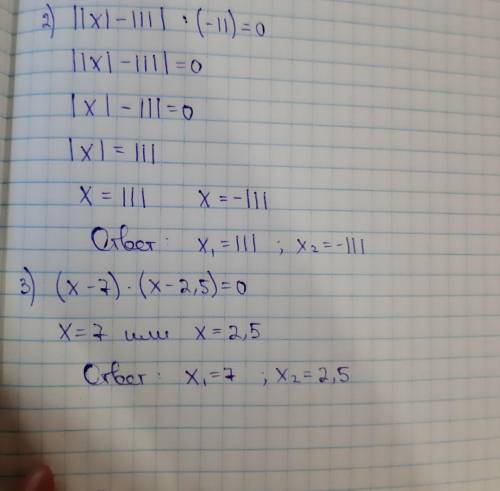 2) ||x| - 111| · (-11) = 0
||x| - 111| = 0
|x| - 111 = 0
|x| = 111
x = 111 x = -111
Ответ: x₁ = 111 ; x₂ = -111
3) (x - 7) · (x - 2,5) = 0
x = 7 или x = 2,5
Ответ: x₁ = 7 ; x₂ = 2,5